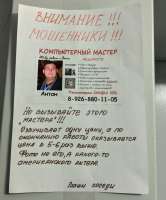 ВНИМАНИЕ!!!
МОШЕННИКИ!!!
КОМПЬЮТЕРНЫЙ МАСТЕР
Антон
8-926-860-11-05
Не вызывайте этого
"мастера"!!!
Озвучивает одну цену, а по
окончанию работы оказывается
цена в 5-6 раз выше.
Фото не его, а какого-то
американского актёра.
Ваши соседи